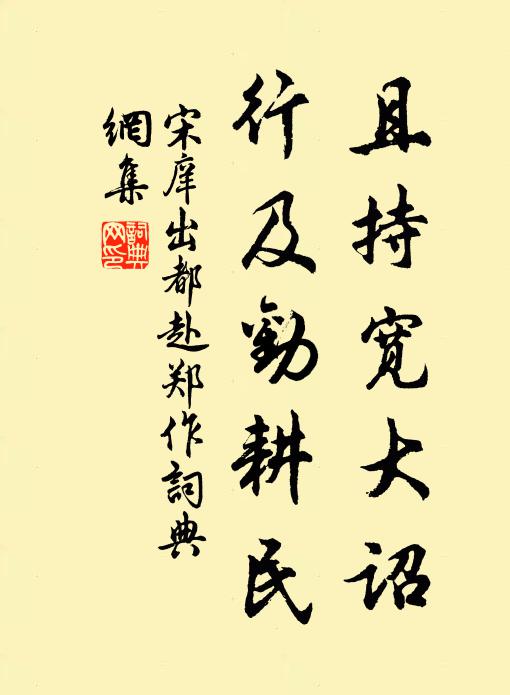 且持宽大诏
行及劝耕民
宋庠出都赴郑作詞典
網集
詞典
网印